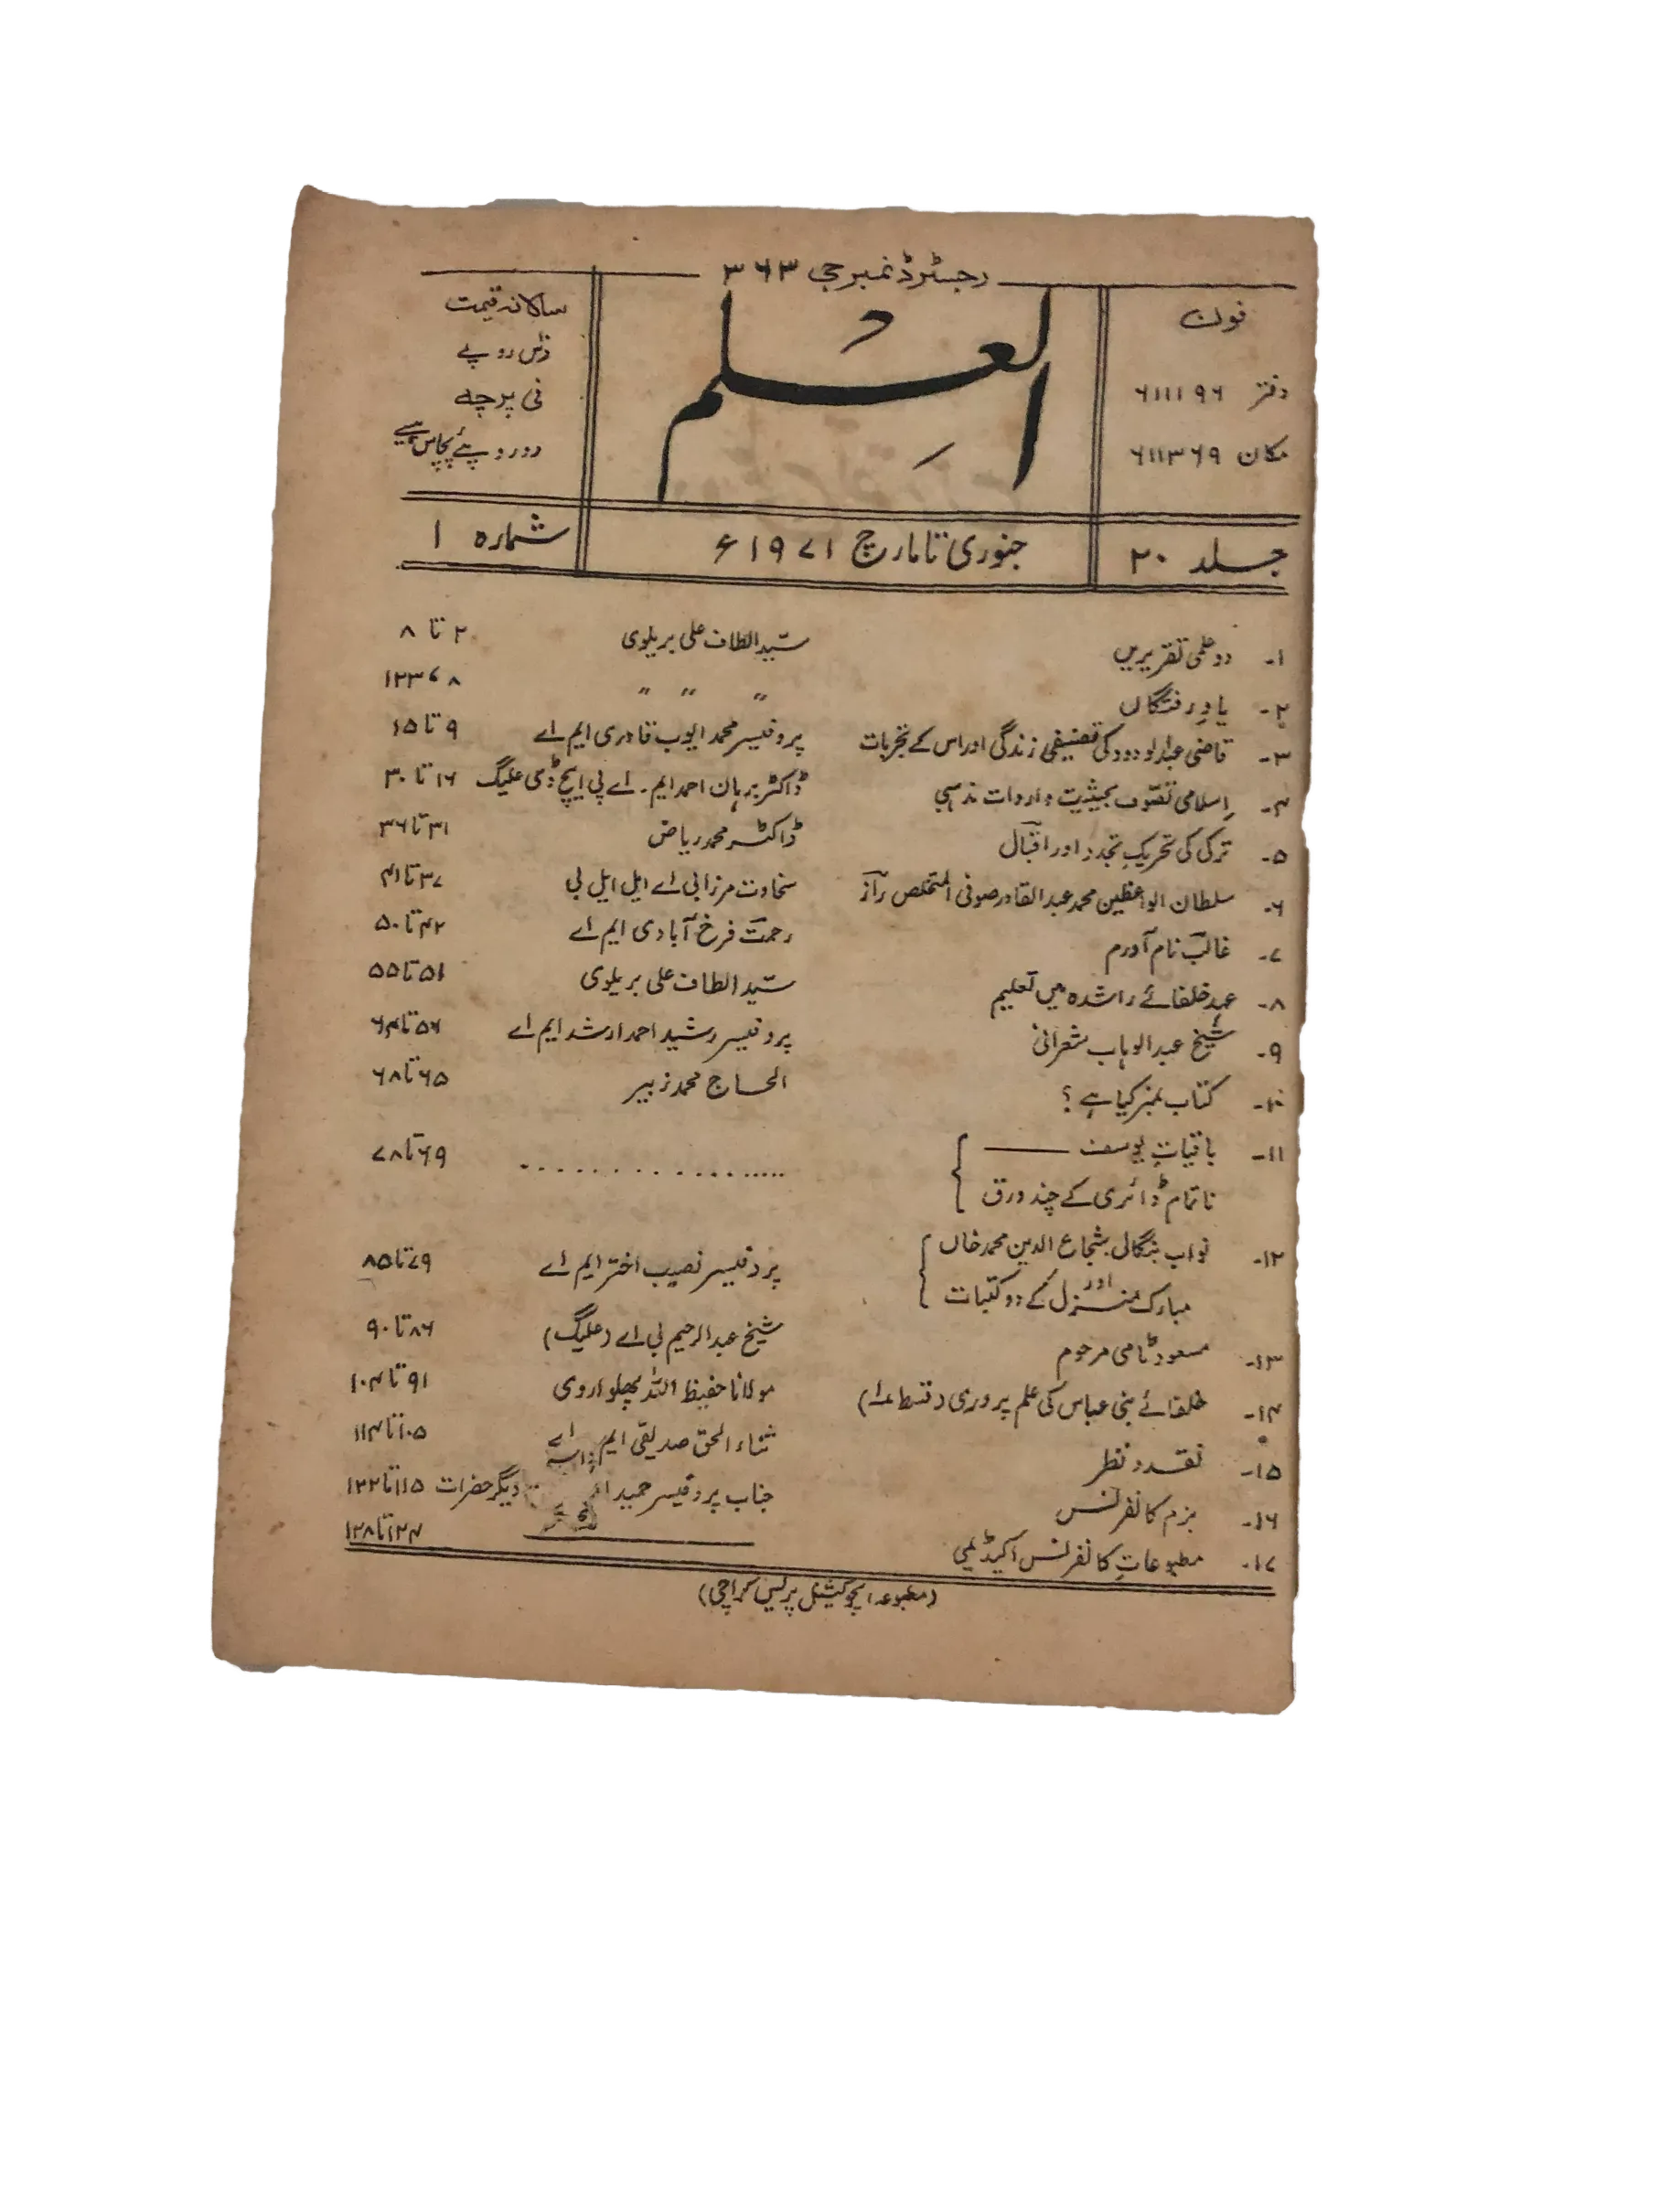 رجسٹرڈ نمبر جی ۳۶۳
فون
دفتر ۶۱۱۱۹۶
مکان ۶۱۱۳۶۹
العلم
سالانہ قیمت
دس روپے
فی پرچہ
دو روپئے پچاس پیسے
جلد ۲۰ جنوری تا مارچ ۱۹۷۱ء شمارہ ۱
۱۔ دو علمی تقریریں سیّد الطاف علی بریلوی ۲ تا ۸
۲۔ یادِ رفتگاں " " " ۸، ۱۲۳
۳۔ قاضی عبدالودود کی تصنیفی زندگی اور اس کے تجربات پروفیسر محمد ایوب قادری ایم اے ۹ تا ۱۵
۴۔ اسلامی تصوّف بحیثیت واردات مذہبی ڈاکٹر برہان احمد ایم۔ اے پی ایچ ڈی علیگ ۱۶ تا ۳۰
۵۔ ترکی کی تحریکِ تجدد اور اقبال ڈاکٹر محمد ریاض ۳۱ تا ۳۶
۶۔ سلطان الواعظین محمد عبدالقادر صوفی المتخلص راز سخاوت مرزا بی اے ایل ایل بی ۳۷ تا ۴۱
۷۔ غالب نام آورم رحمت فرخ آبادی ایم اے ۴۲ تا ۵۰
۸۔ عہدِ خلفائے راشدہ میں تعلیم سیّد الطاف علی بریلوی ۵۱ تا ۵۵
۹۔ شیخ عبدالوہاب شعرانی پروفیسر رشید احمد ارشد ایم اے ۵۶ تا ۶۴
۱۰۔ کتاب نمبر کیا ہے ؟ الحاج محمد زبیر ۶۵ تا ۶۸
۱۱۔ باقیاتِ یوسف ——— ................ ۶۹ تا ۷۸
ناتمام ڈائری کے چند ورق
۱۲۔ نواب بنگالی شجاع الدین محمد خاں پروفیسر نصیب اختر ایم اے ۷۹ تا ۸۵
اور
مبارک منزل کے دو کتبات
۱۳۔ مسعود ٹامی مرحوم شیخ عبدالرحیم بی اے (علیگ) ۸۶ تا ۹۰
۱۴۔ خلفائے بنی عباس کی علم پروری (قسط ۱) مولانا حفیظ اللہ پھلواروی ۹۱ تا ۱۰۴
۱۵۔ نقد و نظر ثناء الحق صدیقی ایم اے ۱۰۵ تا ۱۱۴
۱۶۔ بزم کانفرنس جناب پروفیسر حمید دیگر حضرات ۱۱۵ تا ۱۲۲
۱۷۔ مطبوعاتِ کانفرنس اکیڈیمی ۱۲۴ تا ۱۲۸
(مطبوعہ ایجوکیشنل پریس کراچی)